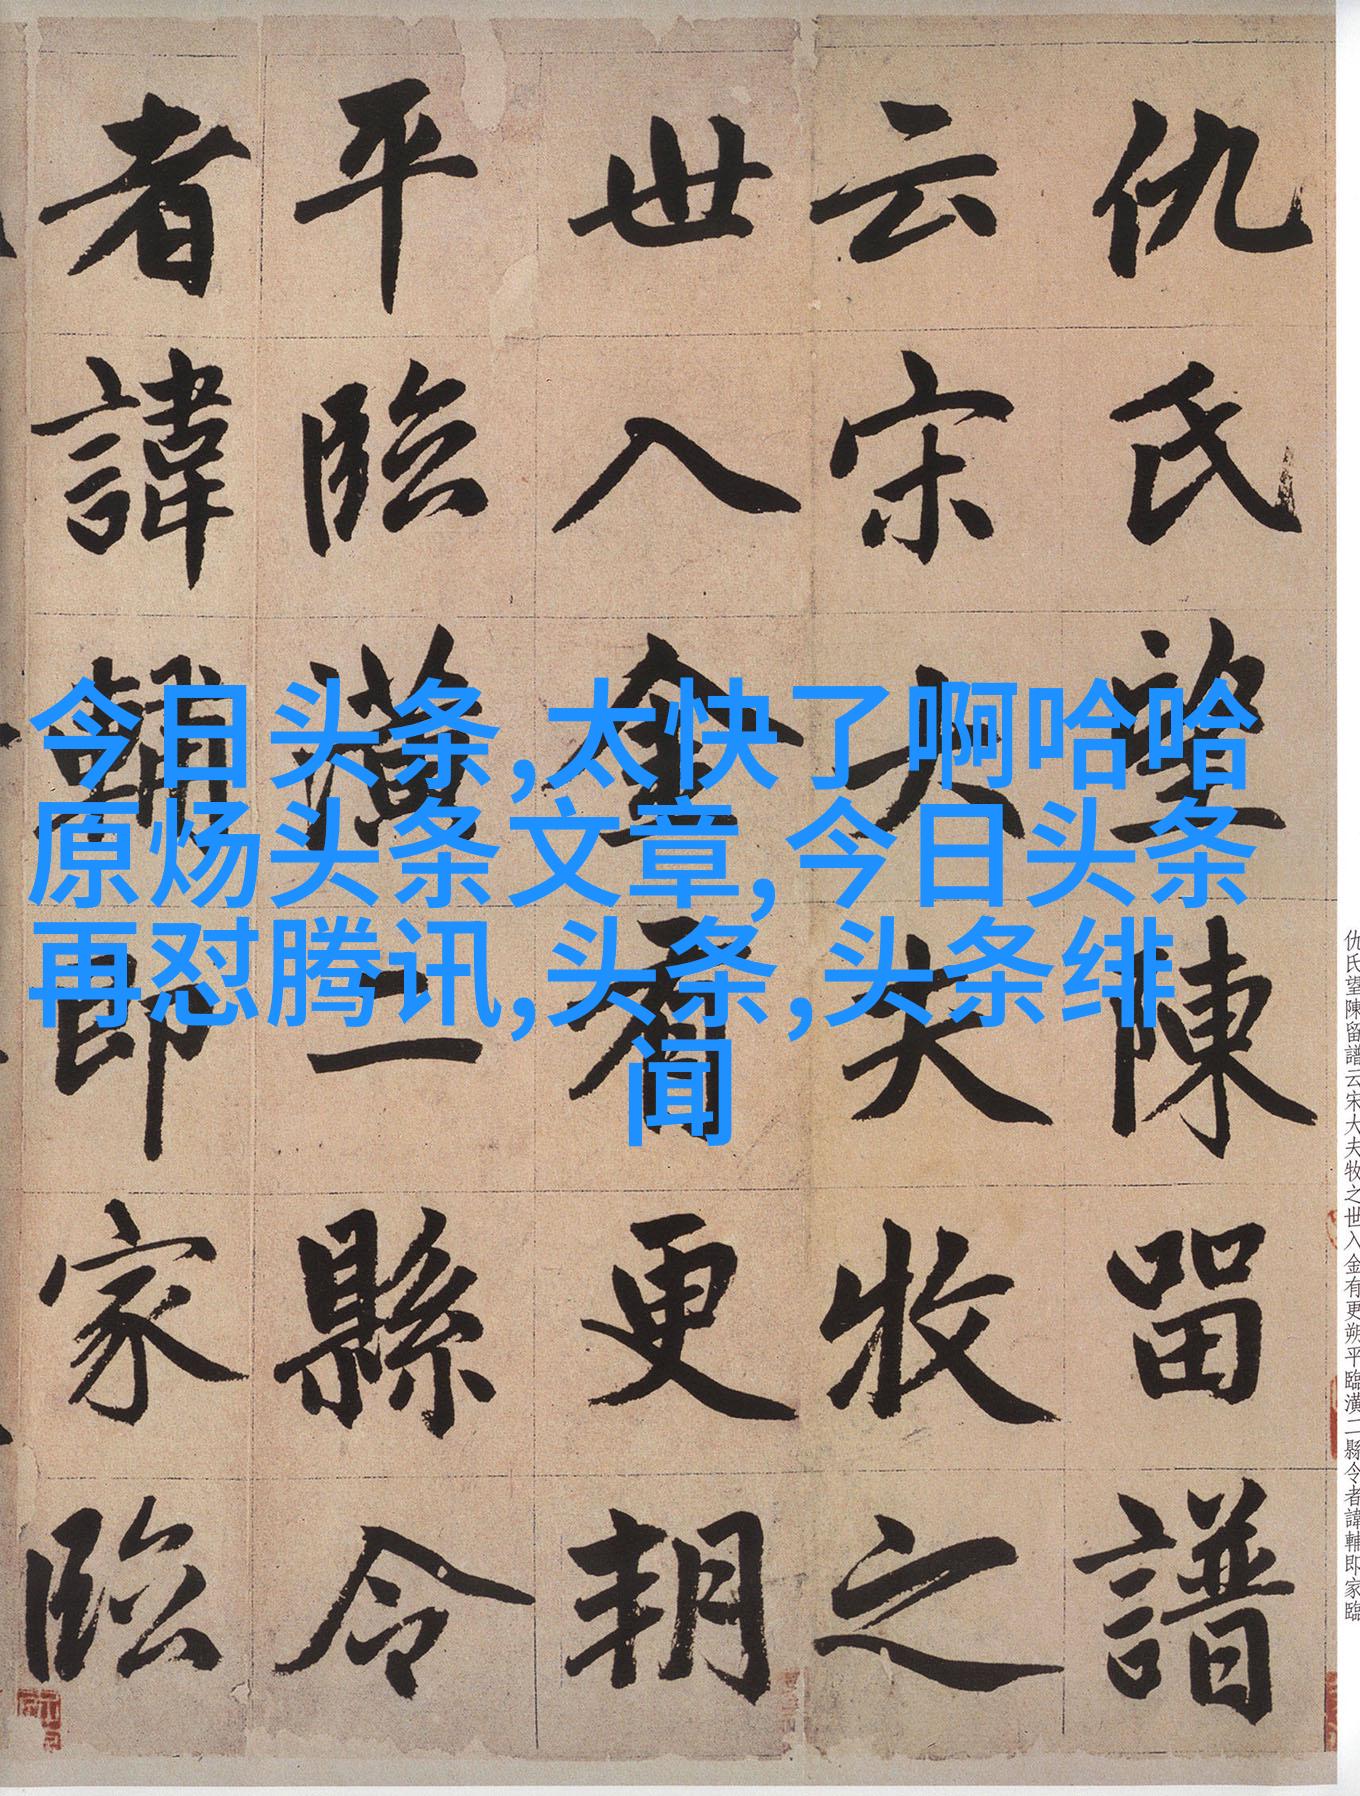 仇氏望陳留譜
云宋大夫牧之
世入金有更朔
平臨潢二縣令
者諱輔即家臨
今日头条,太快了啊哈哈
原炀头条文章,今日头条
再怼腾讯,头条,头条绯
闻
仇氏望陳留譜云宋大夫牧之世入金有更朔平臨潢二縣令者諱輔即家臨